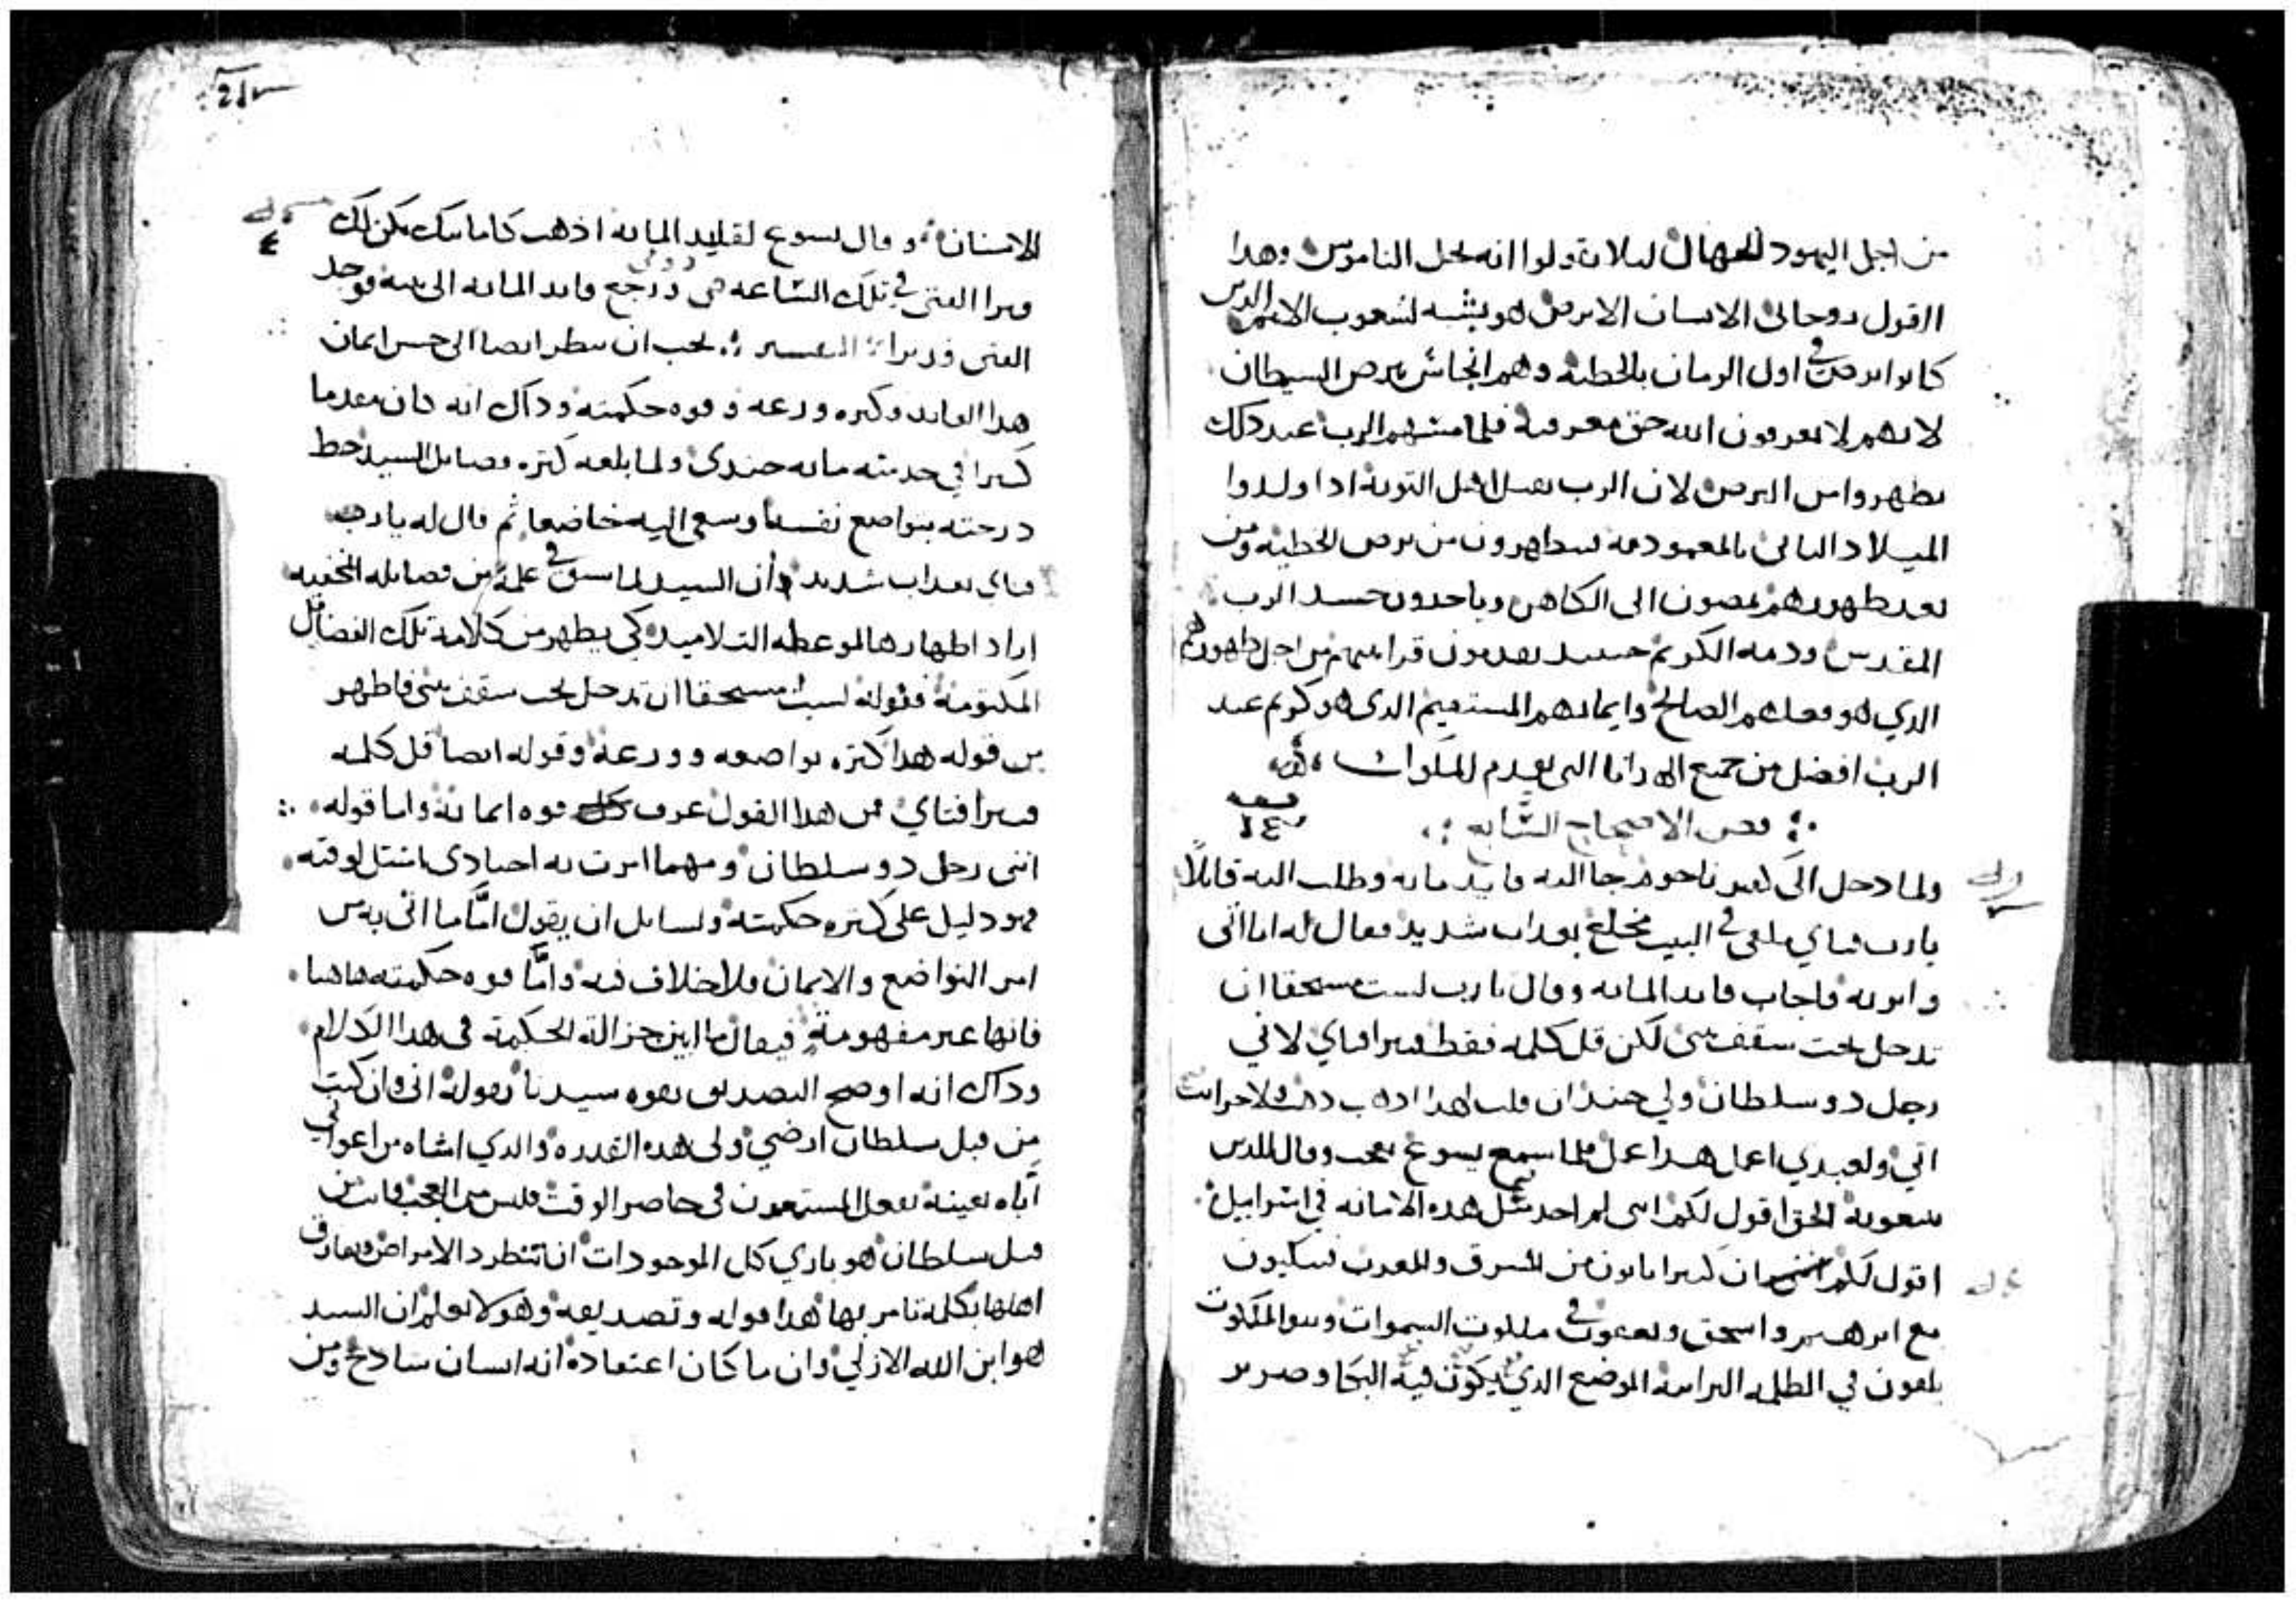 من اجل اليهود الجهال ليلا يقولوا انه يحل الناموس وهدا
القول روحاني الانسان الابرص هو يشبه لشعوب الامم الدين
كانوا برص في اول الزمان بالخطيه وهم انجاس ببرص الشيطان
لانهم لا يعرفون الله حق معرفته فلما مسهم الرب عند دلك
تطهروا من البرص لان الرب يغسل اهل التوبه ادا ولدوا
الميلاد التاني بالمعموديه يتطهرون من برص الخطيه ومن
بعد تطهيرهم يمضون الى الكاهن وياخدون جسد الرب
المقدس ودمه الكريم حينيد يقدمون قرابينهم من اجل طهورهم
الدي هو فعلهم الصالح وايمانهم المستقيم الدي هو كريم عند
الرب افضل من جميع الهدايا التي تقدم للملوك
فص الاصحاح السابع
ولما دخل الى كفر ناحوم جا اليه قايد مايه وطلب اليه قايلا
يارب فتاي ملقى في البيت مخلع بعداب شديد فقال له انا اتي
وابريه فاجاب قايد المايه وقال يارب لست مستحقا ان
تدخل تحت سقف بيتي لكن قل كلمه فقط فيبرا فتاي لاني
رجل دو سلطان ولي جند ان قلت لهدا ادهب دهب ولاخر ايت
اتي ولعبدي اعمل هدا عمل فلما سمع يسوع تعجب وقال للدين
يتبعونه الحق اقول لكم انني لم اجد مثل هده الامانه في اسراييل
اقول لكم ان كتيرا ياتون من المشرق والمغرب فيتكيون
مع ابرهيم واسحق ويعقوب في ملكوت السموات وبنو الملكوت
يلقون في الظلمه البرانيه الموضع الدي يكون فيه البكا وصرير
الاسنان وقال يسوع لقايد المايه ادهب كامانتك يكن لك
وبرا الفتى في تلك الساعه ورجع قايد المايه الى بيته فوجد
الفتى قد برا التفسير يجب ان ينظر ايضا الى حسن ايمان
هدا القايد وكتره ورعه وقوه حكمته وداك انه كان مقدما
كبيرا في خدمته مايه جندي ولما بلغه كتره فضايل السيد حط
درجته بتواضع نفسه وسعى اليه خاضعا ثم قال له يارب
فتاي بعداب شديد وان السيد لما سبق في علمه من فضايله المخفيه
اراد اظهارها لموعظه التلاميد كي يظهر من كلامه تلك الفضايل
المكتومه فقوله لست مستحقا ان تدخل تحت سقف بيتي فاظهر
من قوله هدا كتره تواضعه وورعه وقوله ايضا قل كلمه
فيبرا فتاي فمن هدا القول عرف قوه ايمانه واما قوله
انني رجل دو سلطان ومهما امرت به اجنادي امتتل لوقته
فهو دليل على كتره حكمته ولسايل ان يقول اما ما اتى به من
امر التواضع والايمان فلا خلاف فيه واما قوه حكمته هاهنا
فانها غير مفهومه فيقال ما اين جزالة الحكمة في هدا الكلام
وداك انه اوضح التصديق بقوه سيدنا بقوله اني وان كنت
من قبل سلطان ارضي ولي هده القدره والدي اشاه من اعواني
اياه بعينه يفعل المستعدون في حاضر الوقت فليس من العجب فانت من
قبل سلطان هو باري كل الموجودات ان تنطرد الامراض وتفارق
اهلها بكلمة تامر بها هدا قوله وتصديقه وهو لا يعلم ان السيد
هو ابن الله الازلي وان ما كان اعتقاده انه انسان سادج ومن